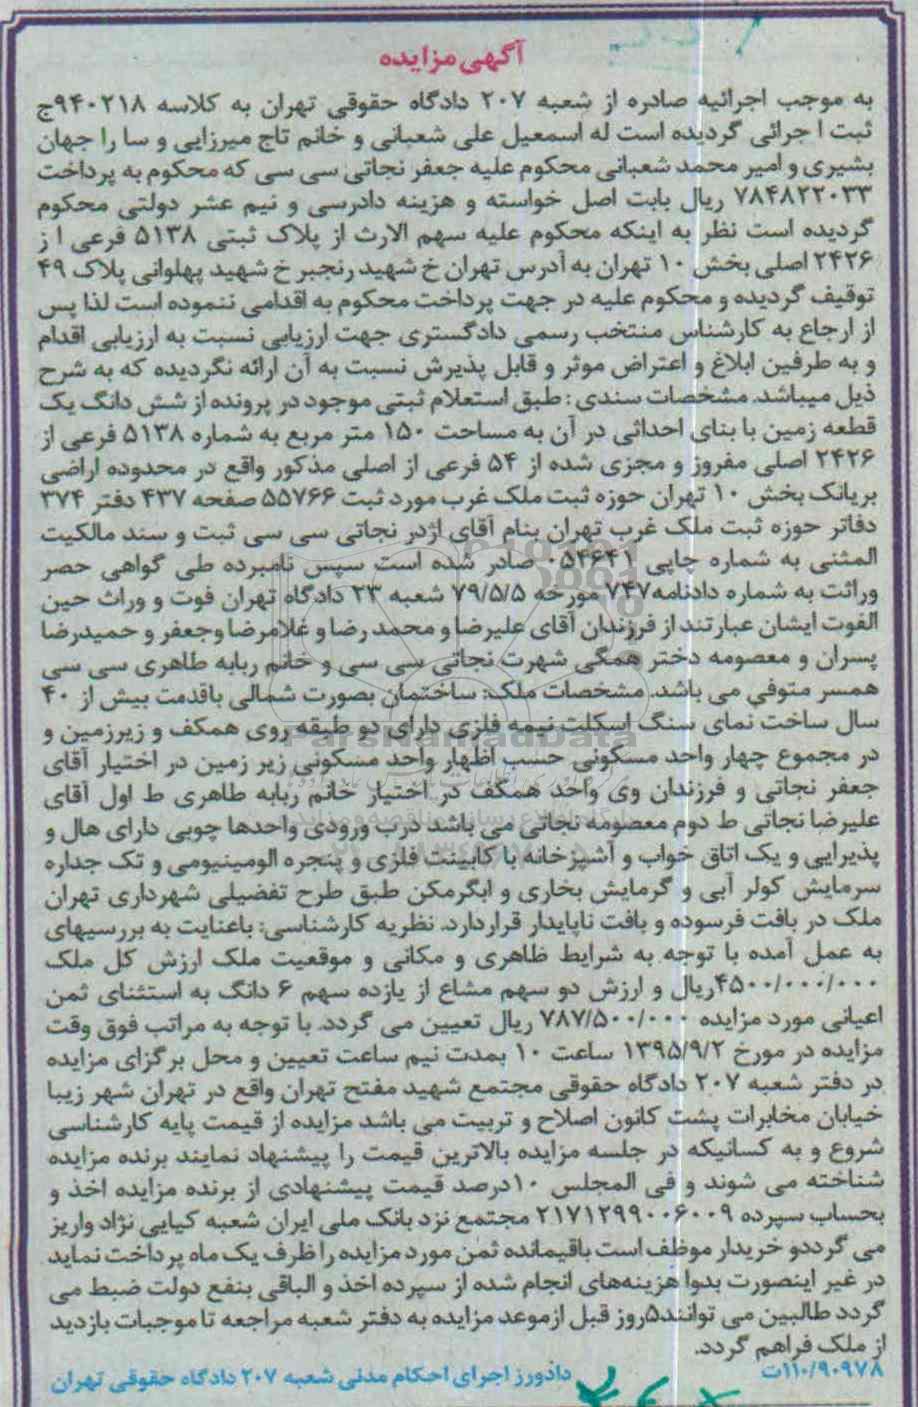 آگهی مزایده
به موجب اجرائیه صادره از شعبه ۲۰۷ دادگاه حقوقی تهران به کلاسه ۹۴۰۲۱۸ج
ثبت ا جرائی گردیده است له اسمعیل علی شعبانی و خانم تاج میرزایی و سا را جهان
بشیری و امیر محمد شعبانی محکوم علیه جعفر نجاتی سی سی که محکوم به پرداخت
۷۸۴۸۲۲۰۳۳ ریال بابت اصل خواسته و هزینه دادرسی و نیم عشر دولتی محکوم
گردیده است نظر به اینکه محکوم علیه سهم الارث از پلاک ثبتی ۵۱۳۸ فرعی ا ز
۲۴۲۶ اصلی بخش ۱۰ تهران به آدرس تهران خ شهید رنجبر خ شهید پهلوانی پلاک ۴۹
توقیف گردیده و محکوم علیه در جهت پرداخت محکوم به اقدامی ننموده است لذا پس
از ارجاع به کارشناس منتخب رسمی دادگستری جهت ارزیابی نسبت به ارزیابی اقدام
و به طرفین ابلاغ و اعتراض موثر و قابل پذیرش نسبت به آن ارائه نگردیده که به شرح
ذیل میباشد. مشخصات سندی : طبق استعلام ثبتی موجود در پرونده از شش دانگ یک
قطعه زمین با بنای احداثی در آن به مساحت ۱۵۰ متر مربع به شماره ۵۱۳۸ فرعی از
۲۴۲۶ اصلی مفروز و مجزی شده از ۵۴ فرعی از اصلی مذکور واقع در محدوده اراضی
بریانک بخش ۱۰ تهران حوزه ثبت ملک غرب مورد ثبت ۵۵۷۶۶ صفحه ۴۳۷ دفتر ۳۷۴
دفاتر حوزه ثبت ملک غرب تهران بنام آقای اژدر نجاتی سی سی ثبت و سند مالکیت
المثنی به شماره چاپی ۰۵۴۶۴۱ صادر شده است سپس نامبرده طی گواهی حصر
وراثت به شماره دادنامه۷۴۷ مورخه ۷۹/۵/۵ شعبه ۲۳ دادگاه تهران فوت و وراث حین
الفوت ایشان عبارتند از فرزندان آقای علیرضا و محمد رضا و غلامرضا وجعفر و حمیدرضا
پسران و معصومه دختر همگی شهرت نجاتی سی سی و خانم ربابه طاهری سی سی
همسر متوفی می باشد. مشخصات ملک: ساختمان بصورت شمالی باقدمت بیش از ۴۰
سال ساخت نمای سنگ اسکلت نیمه فلزی دارای دو طبقه روی همکف و زیرزمین و
در مجموع چهار واحد مسکونی حسب اظهار واحد مسکونی زیر زمین در اختیار آقای
جعفر نجاتی و فرزندان وی واحد همکف در اختیار خانم ربابه طاهری ط اول آقای
علیرضا نجاتی ط دوم معصومه نجاتی می باشد درب ورودی واحدها چوبی دارای هال و
پذیرایی و یک اتاق خواب و آشپزخانه با کابینت فلزی و پنجره الومینیومی و تک جداره
سرمایش کولر آبی و گرمایش بخاری و ابگرمکن طبق طرح تفضیلی شهرداری تهران
ملک در بافت فرسوده و بافت ناپایدار قراردارد. نظریه کارشناسی: باعنایت به بررسیهای
به عمل آمده با توجه به شرایط ظاهری و مکانی و موقعیت ملک ارزش کل ملک
۴۵۰۰/۰۰۰/۰۰۰ریال و ارزش دو سهم مشاع از یازده سهم ۶ دانگ به استثنای ثمن
اعیانی مورد مزایده ۷۸۷/۵۰۰/۰۰۰ ریال تعیین می گردد. با توجه به مراتب فوق وقت
مزایده در مورخ ۱۳۹۵/۹/۲ ساعت ۱۰ بمدت نیم ساعت تعیین و محل برگزای مزایده
در دفتر شعبه ۲۰۷ دادگاه حقوقی مجتمع شهید مفتح تهران واقع در تهران شهر زیبا
خیابان مخابرات پشت کانون اصلاح و تربیت می باشد مزایده از قیمت پایه کارشناسی
شروع و به کسانیکه در جلسه مزایده بالاترین قیمت را پیشنهاد نمایند برنده مزایده
شناخته می شوند و فی المجلس ۱۰درصد قیمت پیشنهادی از برنده مزایده اخذ و
بحساب سپرده ۲۱۷۱۲۹۹۰۰۶۰۰۹ مجتمع نزد بانک ملی ایران شعبه کیایی نژاد واریز
می گرددو خریدار موظف است باقیمانده ثمن مورد مزایده را ظرف یک ماه پرداخت نماید
در غیر اینصورت بدوا هزینه‌های انجام شده از سپرده اخذ و الباقی بنفع دولت ضبط می
گردد طالبین می توانند۵روز قبل ازموعد مزایده به دفتر شعبه مراجعه تا موجبات بازدید
از ملک فراهم گردد.
۱۱۰/۹۰۹۷۸ت
دادورز اجرای احکام مدنی شعبه ۲۰۷ دادگاه حقوقی تهران
ParsNamadData